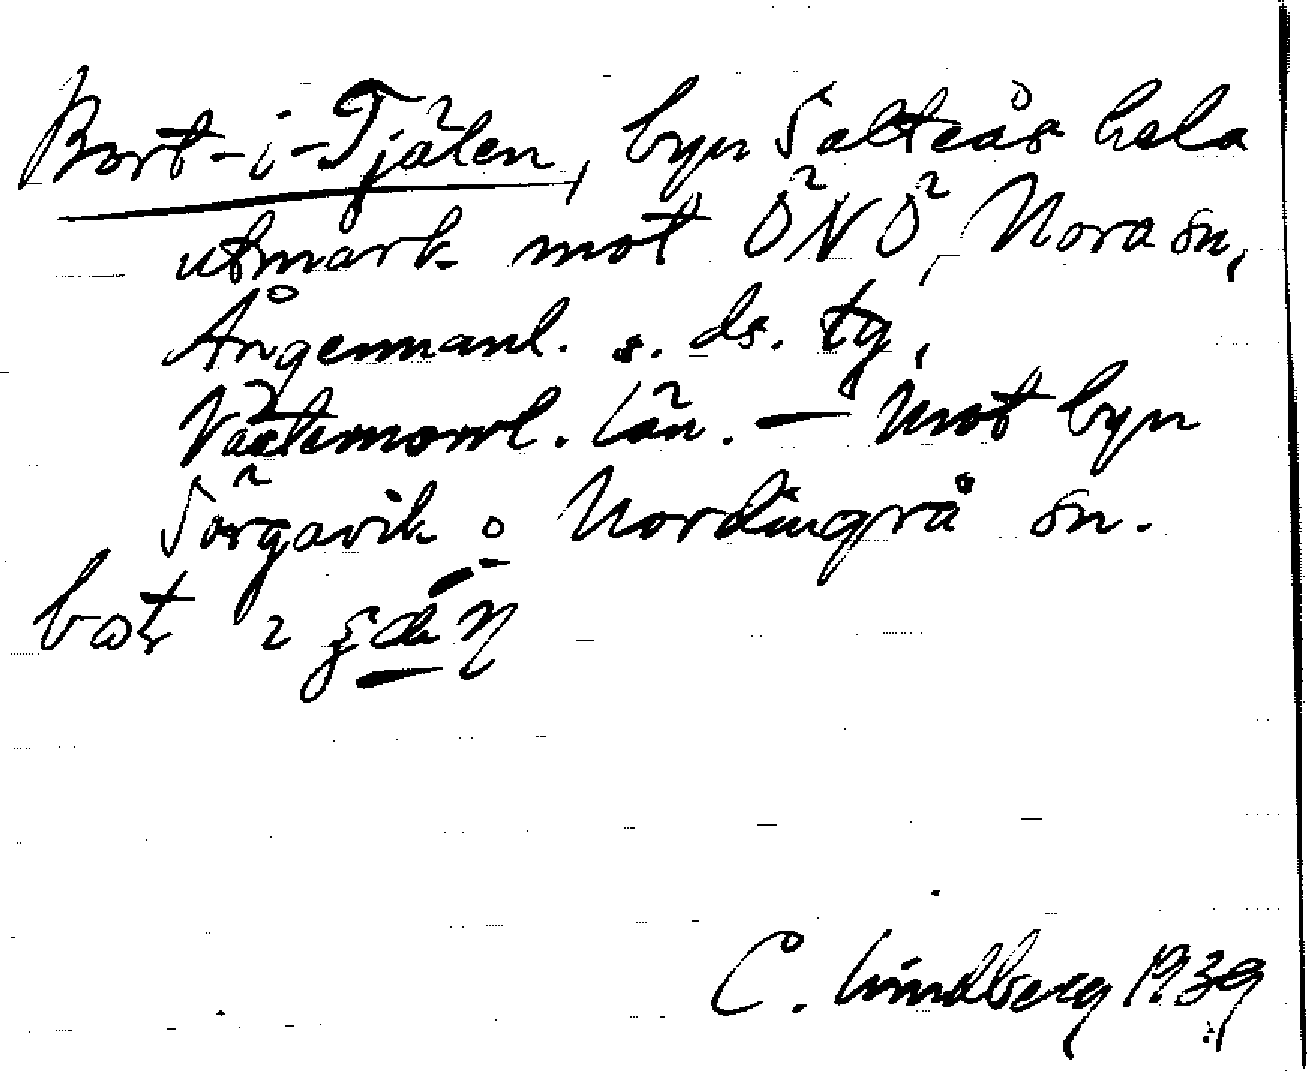 Bort-i-Tjälen, byn Salteås hela
utmark mot ÖNÖ, Nora sn,
Ångermanl. s. ds. tg,
Västernorrl. län. — Mot byn
Sörgavik o Nordingrå sn.
C. Lindberg 1939